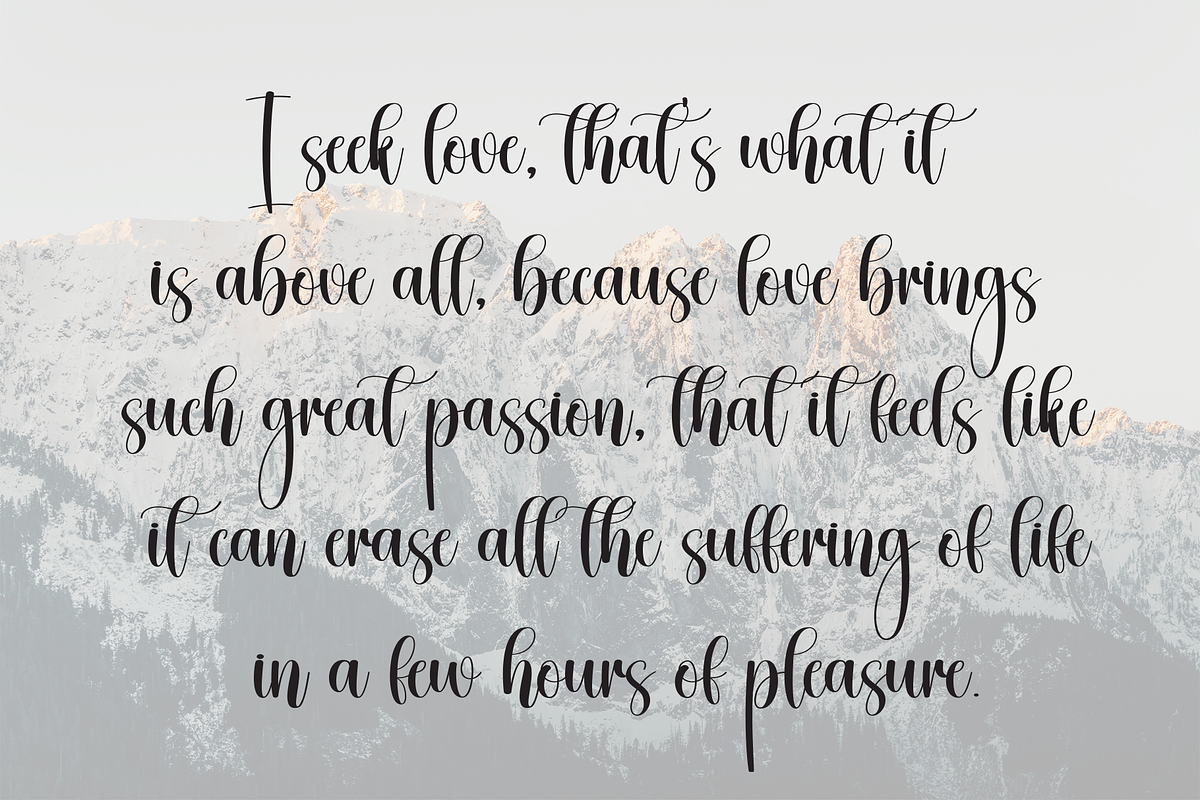 I seek love, that's what it
is above all, because love brings
such great passion, that it feels like
it can erase all the suffering of life
in a few hours of pleasure.